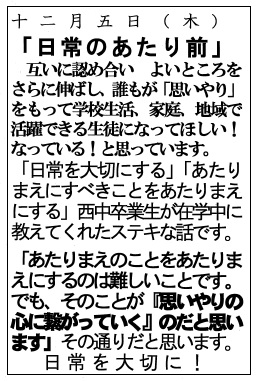 十二月五日（木）
「日常のあたり前」
互いに認め合い　よいところを
さらに伸ばし、誰もが「思いやり」
をもって学校生活、家庭、地域で
活躍できる生徒になってほしい！
なっている！と思っています。
「日常を大切にする」「あたり
まえにすべきことをあたりまえ
にする」西中卒業生が在学中に
教えてくれたステキな話です。
「あたりまえのことをあたりま
えにするのは難しいことです。
でも、そのことが『思いやりの
心に繋がっていく』のだと思い
ます」その通りだと思います。
日常を大切に！